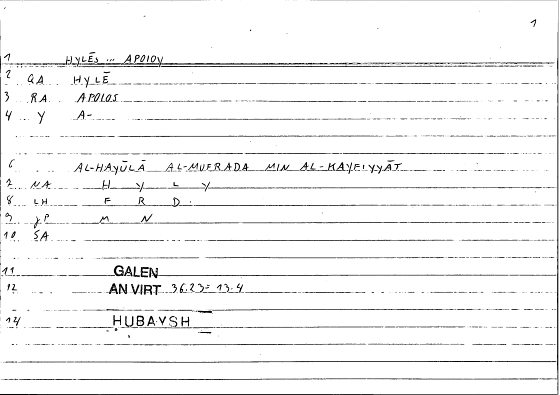 1
1 HYLĒS ... APOIOY
2 GA HYLĒ
3 RA APOIOS
4 Y A-
6 AL-HAYŪLĀ AL-MUFRADA MIN AL-KAYFIYYĀT
7 NA H Y L Y
8 LH F R D
9 JP M N
10 SA
11 GALEN
12 AN VIRT 36.23 = 13.4
14 ḤUBAYSH